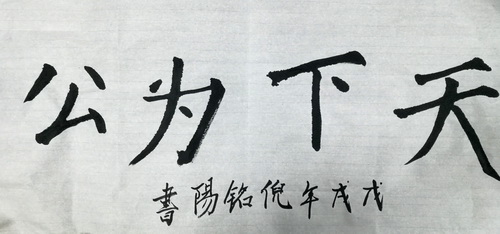 天下为公
戊戌年倪铭陽書